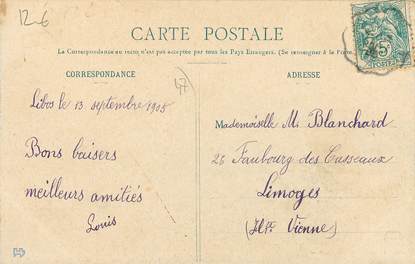 12-6
CARTE POSTALE
La Correspondance au recto n'est pas acceptée par tous les Pays Etrangers. (Se renseigner à la Poste)
CORRESPONDANCE
ADRESSE
47
5c
POSTES
Libos le 13 septembre 1905
Bons baisers
meilleurs amitiés
Louis
Mademoiselle M. Blanchard
25 Faubourg des Casseaux
Limoges
(Hte Vienne)